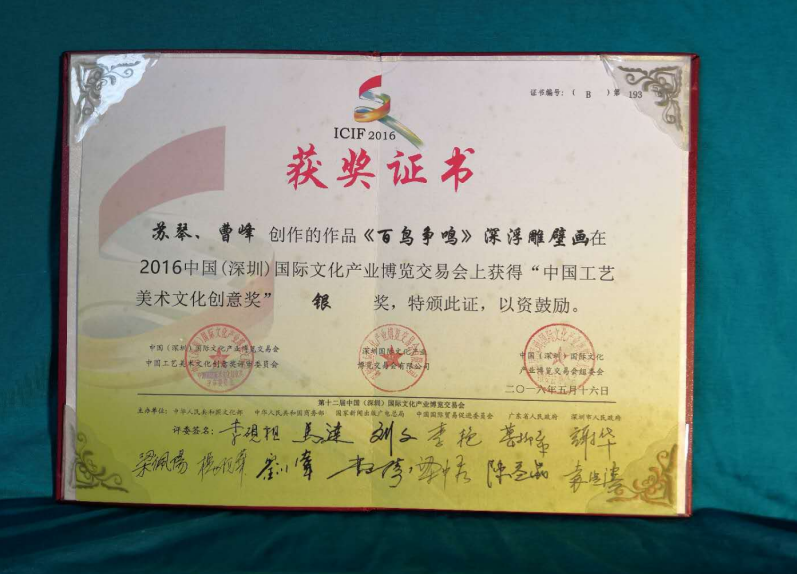 证书编号：（ B ）第 193
ICIF 2016
获奖证书
苏琴、曹峰 创作的作品《百鸟争鸣》深浮雕壁画在
2016中国(深圳)国际文化产业博览交易会上获得“中国工艺
美术文化创意奖” 银 奖，特颁此证，以资鼓励。
中国（深圳）国际文化产业博览交易会
中国工艺美术文化创意奖评审委员会
深圳国际文化产业
博览交易会有限公司
中国（深圳）国际文化
产业博览交易会组委会
二〇一六年五月十六日
第十二届中国（深圳）国际文化产业博览交易会
主办单位：中华人民共和国文化部 中华人民共和国商务部 国家新闻出版广电总局 中国国际贸易促进委员会 广东省人民政府 深圳市人民政府
评委签名：